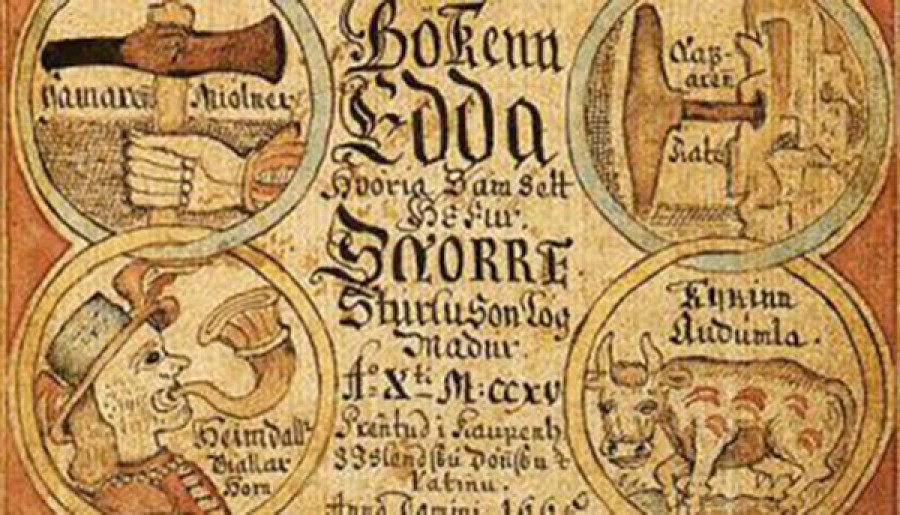 Bokenn
Edda
Hvoria Samsett
Hefur
SNORRE
Sturluson Log
Madur
A° Xti M:CCXV
Prentud i Kaupenh
Islendsku Donsku
Latinu.
Anno Domini 166
Hamaren Miolner
Rate
Heimdall
Giallar
Horn
Kyrinn
Audumla.